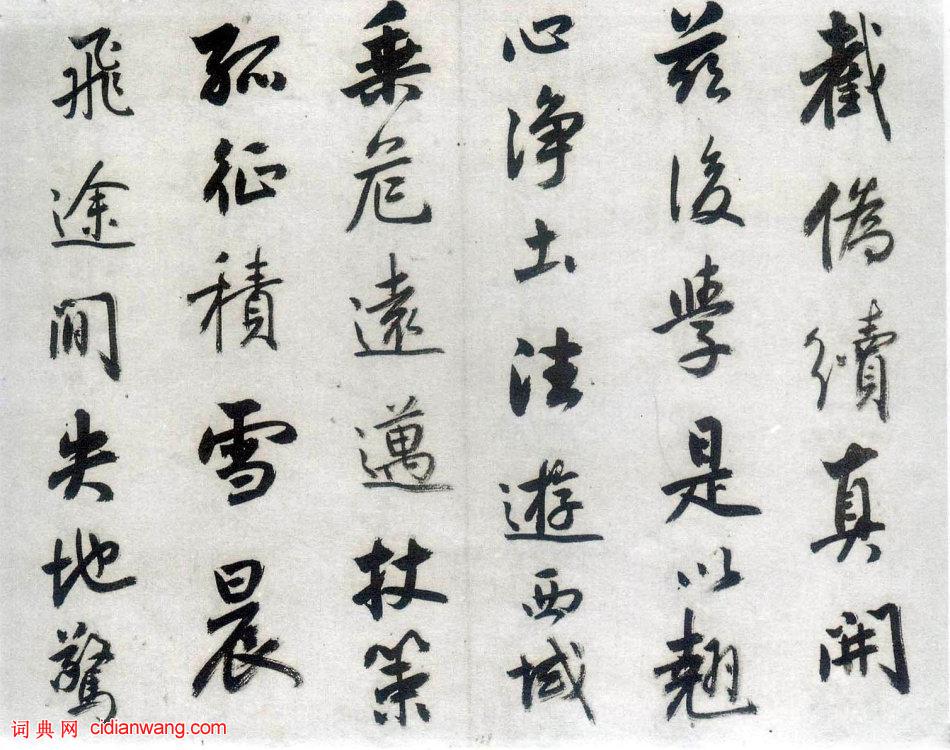 截偽續真開
茲後學是以翹
心淨土法遊西域
乘危遠邁杖策
孤征積雪晨
飛途間失地驚
词典网 cidianwang.com